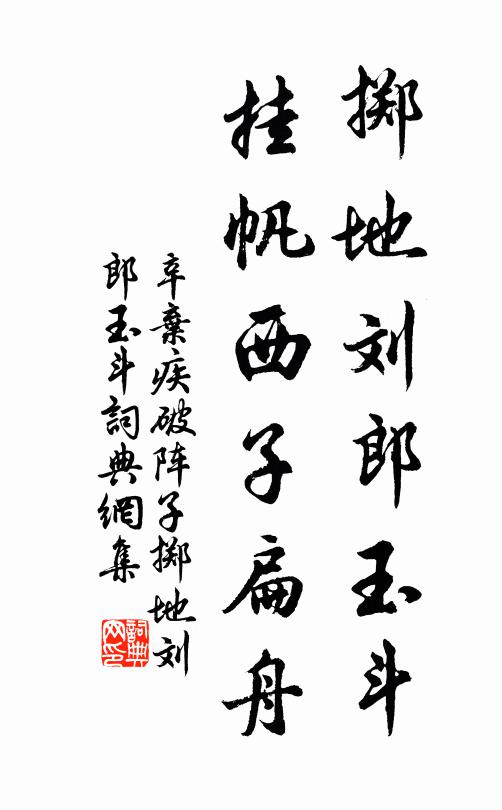 掷地刘郎玉斗
挂帆西子扁舟
辛棄疾破阵子掷地刘
郎玉斗詞典網集
詞典网印